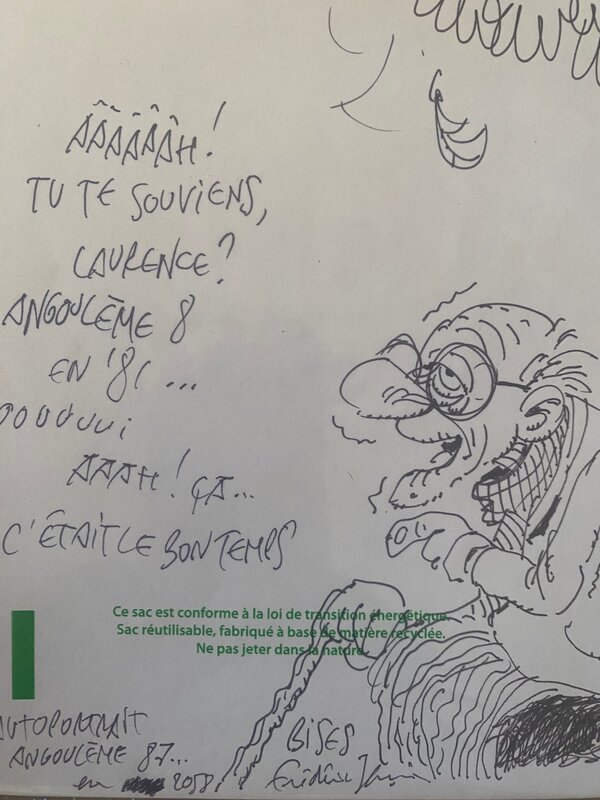 ÂÂÂÂÂÂH!
TU TE SOUVIENS,
LAURENCE?
ANGOULÈME 8
EN '81...
OOOUUUUi
AAAH! ÇA...
C'ÉTAIT LE BON TEMPS
Ce sac est conforme à la loi de transition énergétique.
Sac réutilisable, fabriqué à base de matière recyclée.
Ne pas jeter dans la nature.
AUTOPORTRAIT
ANGOULÈME 87...
en 2058
BISES